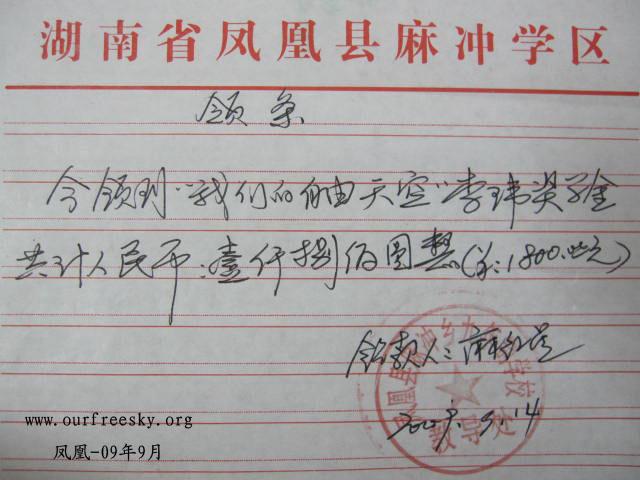 湖南省凤凰县麻冲学区
领条
今领到"我们的自由天空"李玮奖学金
共计人民币:壹仟捌佰圆整(¥:1800.00元)
领款人:麻
凤凰县麻冲乡九年学校
教导处
9.14
www.ourfreesky.org
凤凰-09年9月